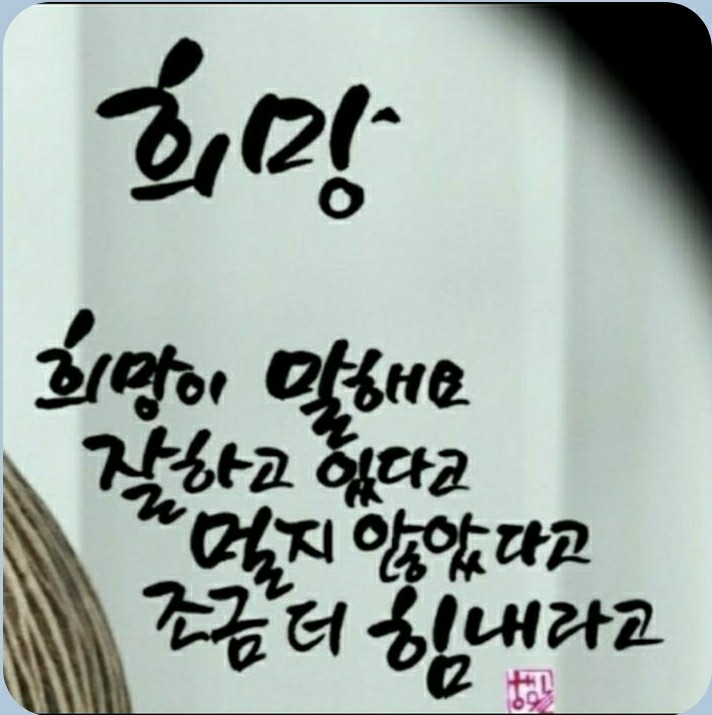 희망
희망이 말해요
잘하고 있다고
멀지 않았다고
조금 더 힘내라고